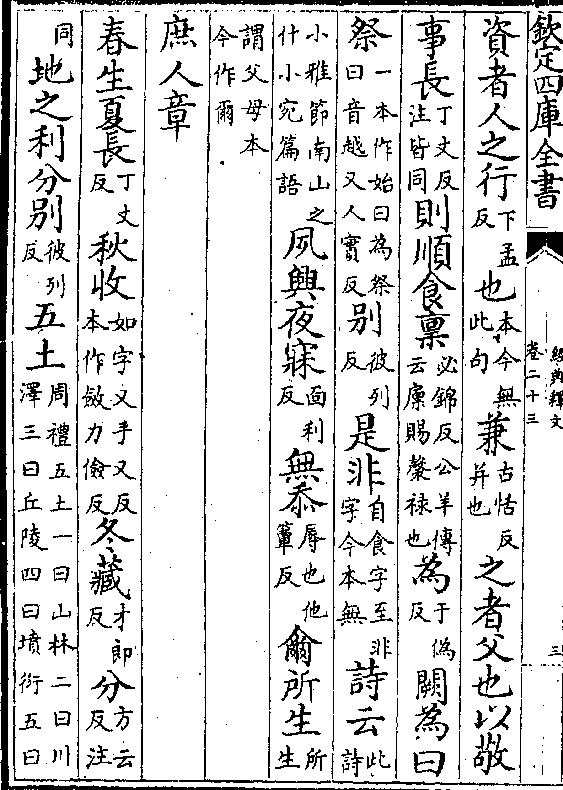 欽定四庫全書
經典釋文
卷二十三
三
資者人之行下孟反也本今無此句兼古恬反并也之者父也以敬
事長丁丈反注皆同則順食禀必錦反公羊傳云廩賜糓祿也為于偽反闕為曰
祭一本作始曰為祭曰音越又人實反別彼列反是非自食字至非字今本無詩云此詩
小雅節南山之什小宛篇語夙興夜寐面利反無忝辱也他簟反爾所生所生
謂父母本今作爾
庶人章
春生夏長丁丈反秋收如字又手又反本作斂力儉反冬藏才郎反分方云反注
同地之利分別彼列反五土周禮五土一曰山林二曰川澤三曰丘陵四曰墳衍五曰